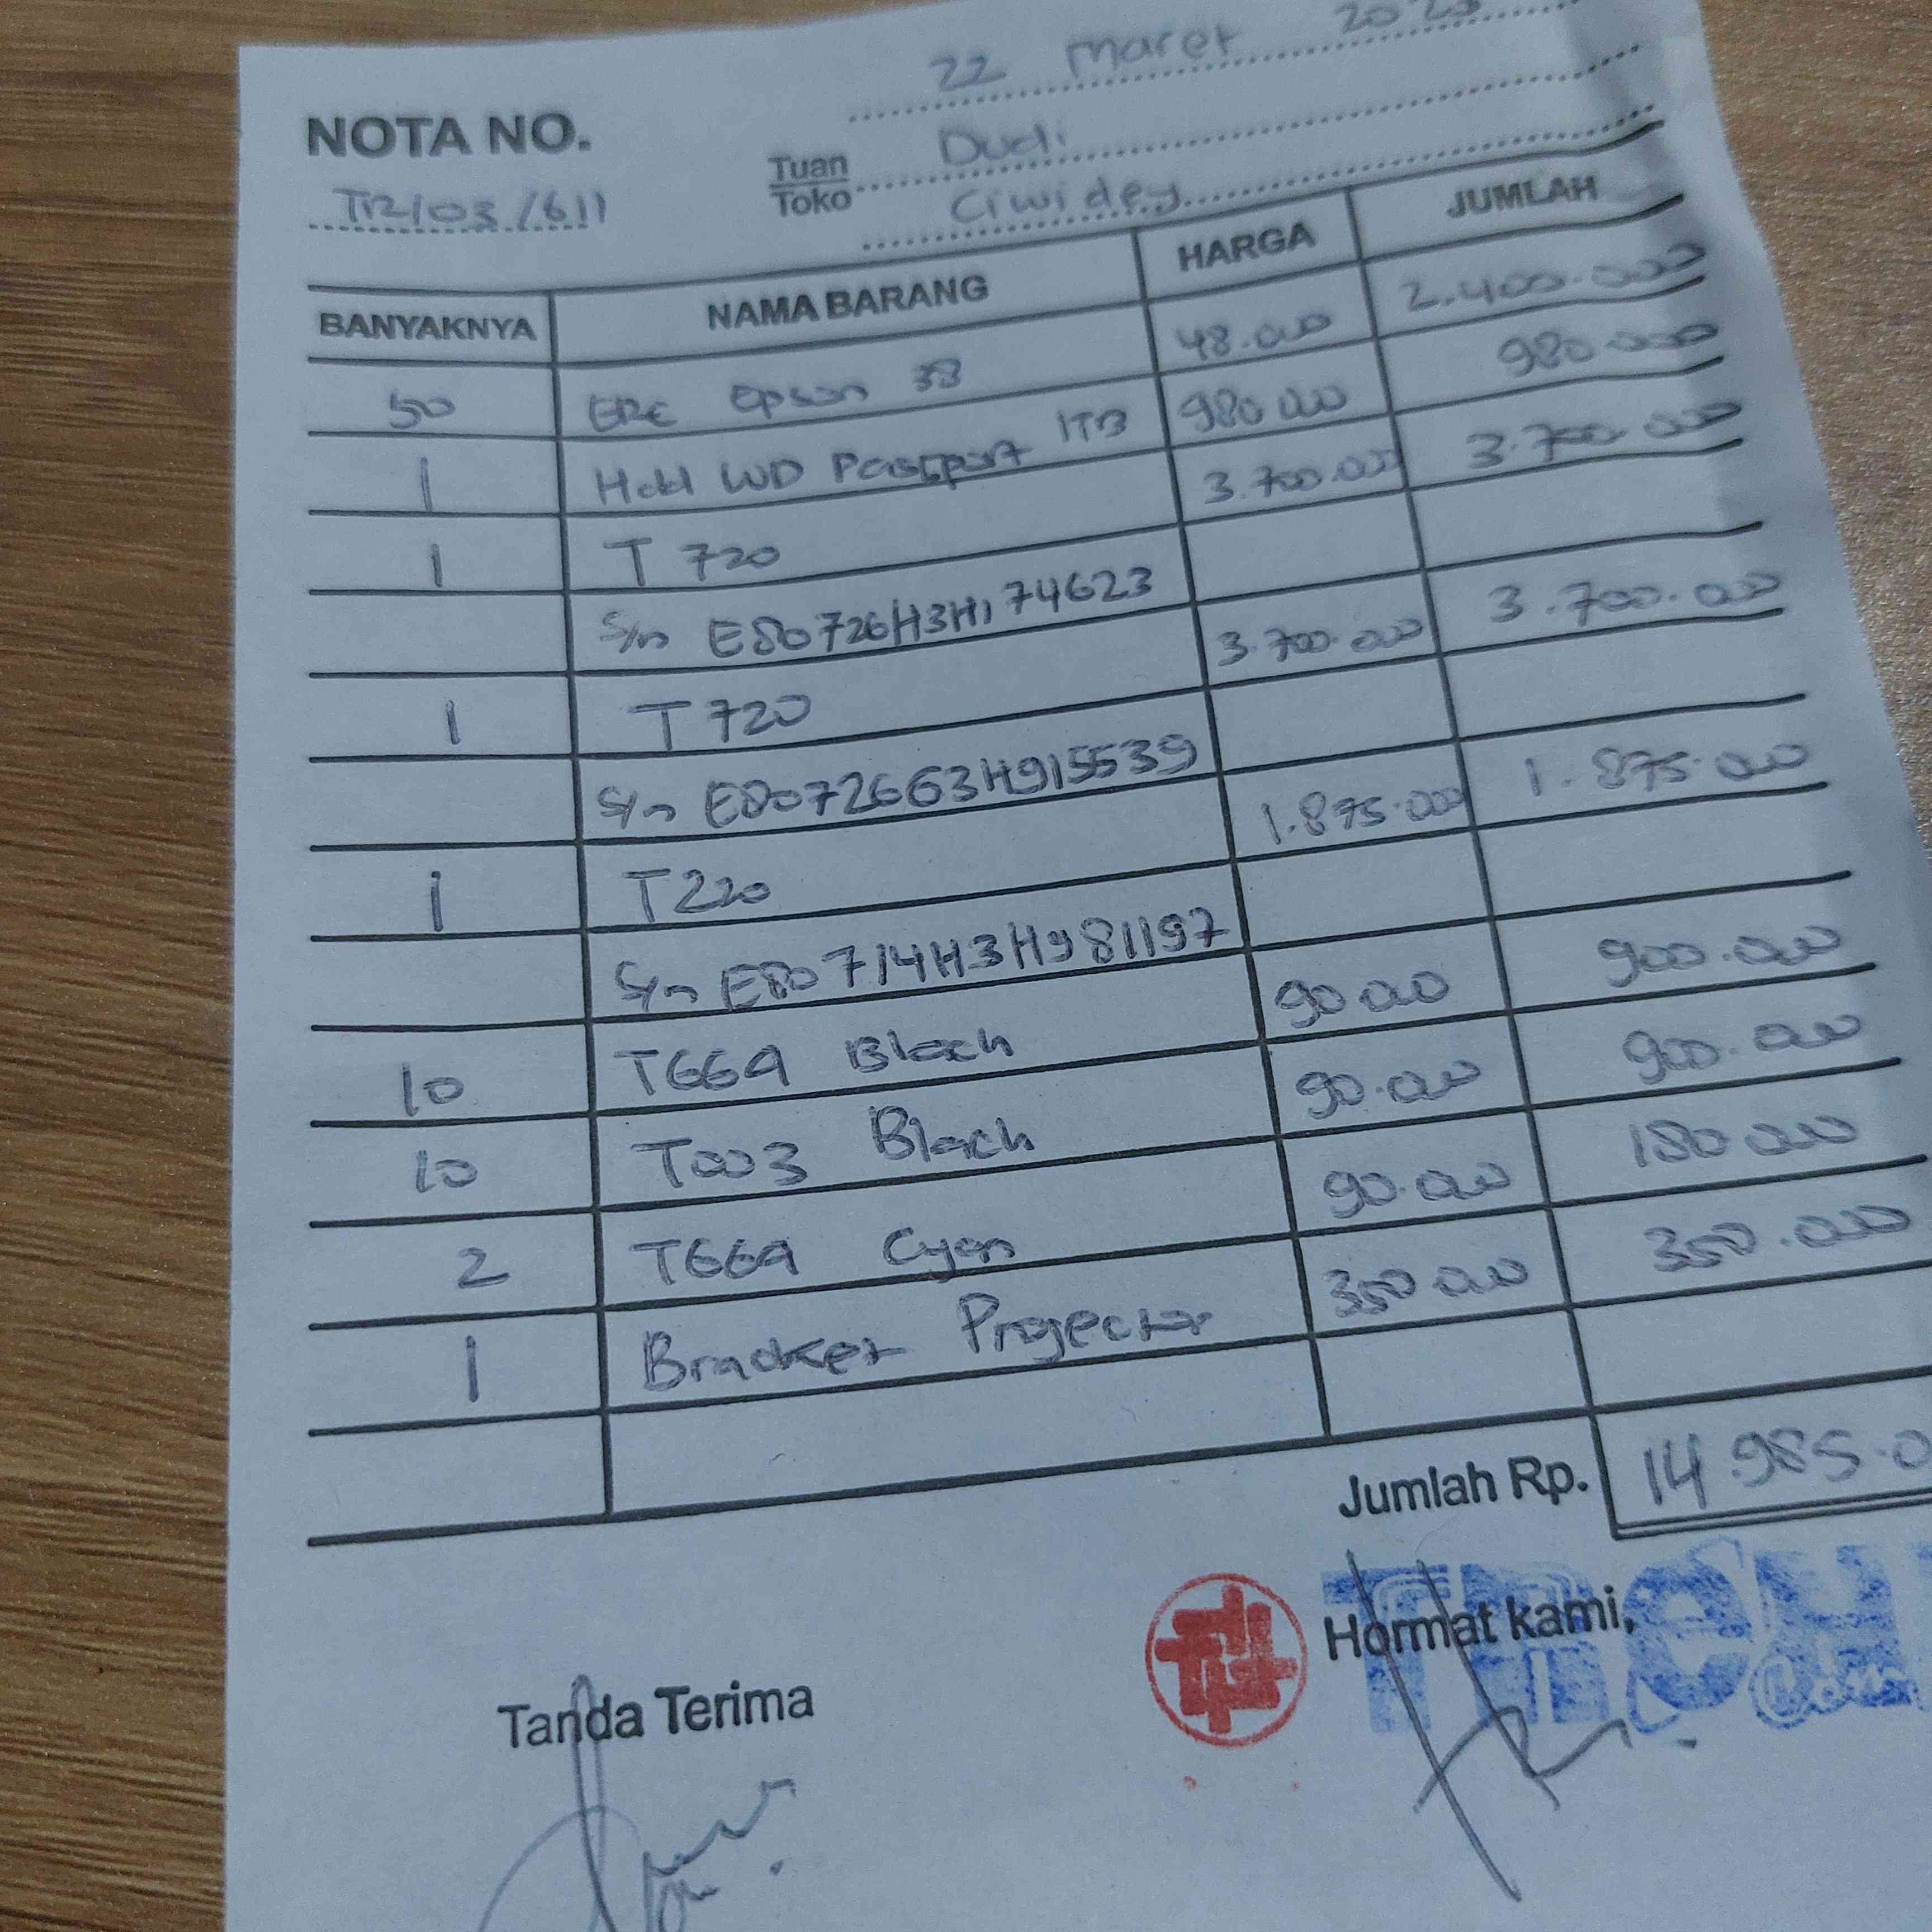 22 Maret 2023
NOTA NO.
Tuan Dudi
Toko Ciwidey
TR/03/611
BANYAKNYA NAMA BARANG HARGA JUMLAH
50 ERC Epson 38 48.000 2.400.000
1 Hdd WD Passport 1TB 980.000 980.000
1 T 720 3.700.000 3.700.000
S/n E80726H3H174623
1 T 720 3.700.000 3.700.000
S/n E8072663H915539
1 T220 1.875.000 1.875.000
S/n E80714H3H981197
10 T664 Black 90.000 900.000
10 T003 Black 90.000 900.000
2 T664 Cyan 90.000 180.000
1 Bracket Projector 350.000 350.000
Jumlah Rp. 14.985.0
Tanda Terima
Hormat kami,